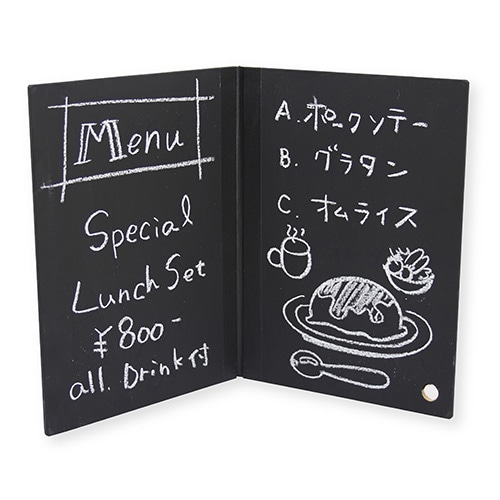 Menu
Special
Lunch Set
¥800-
all. Drink付
A. ポークソテー
B. グラタン
C. オムライス